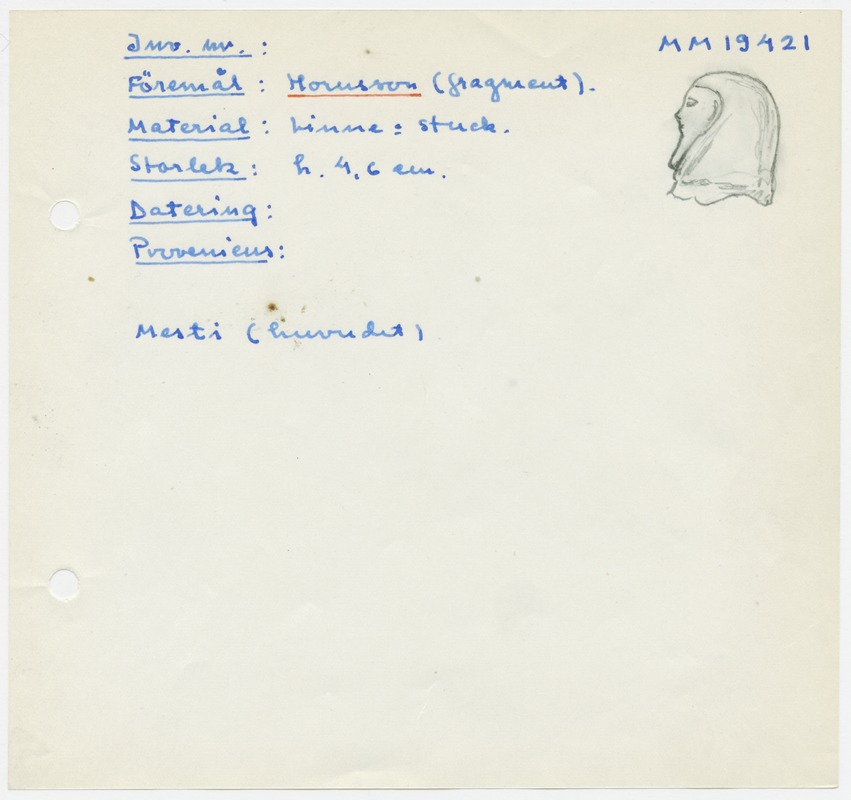 Inv. nr. : MM 19421
Föremål : Horusson (fragment).
Material : Linne = stuck.
Storlek : h. 4,6 cm.
Datering :
Proveniens :
Mesti (huvudet)